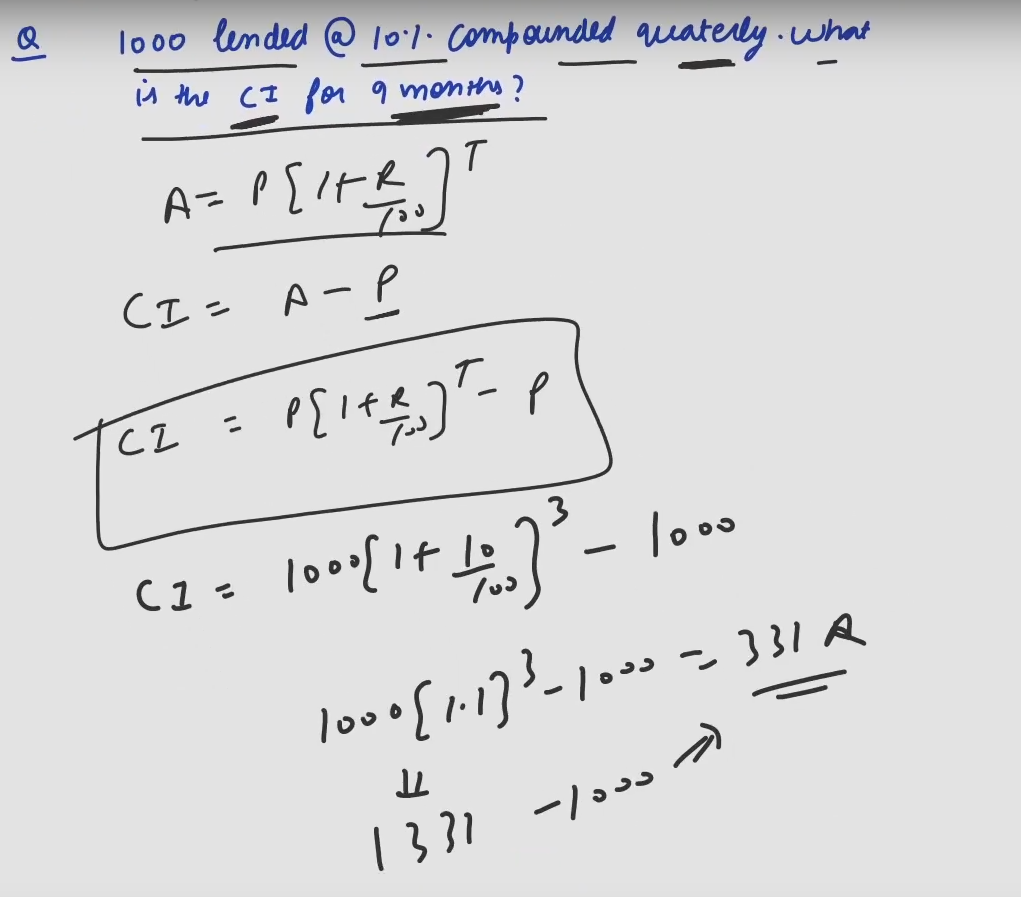 Q 1000 lended @ 10%. compounded quaterly. what
is the CI for 9 months?
A = P[1+R/100]^T
CI = A - P
CI = P[1+R/100]^T - P
CI = 1000[1+10/100]^3 - 1000
1000[1.1]^3 - 1000 = 331 A
⇓
1331 - 1000 ↗